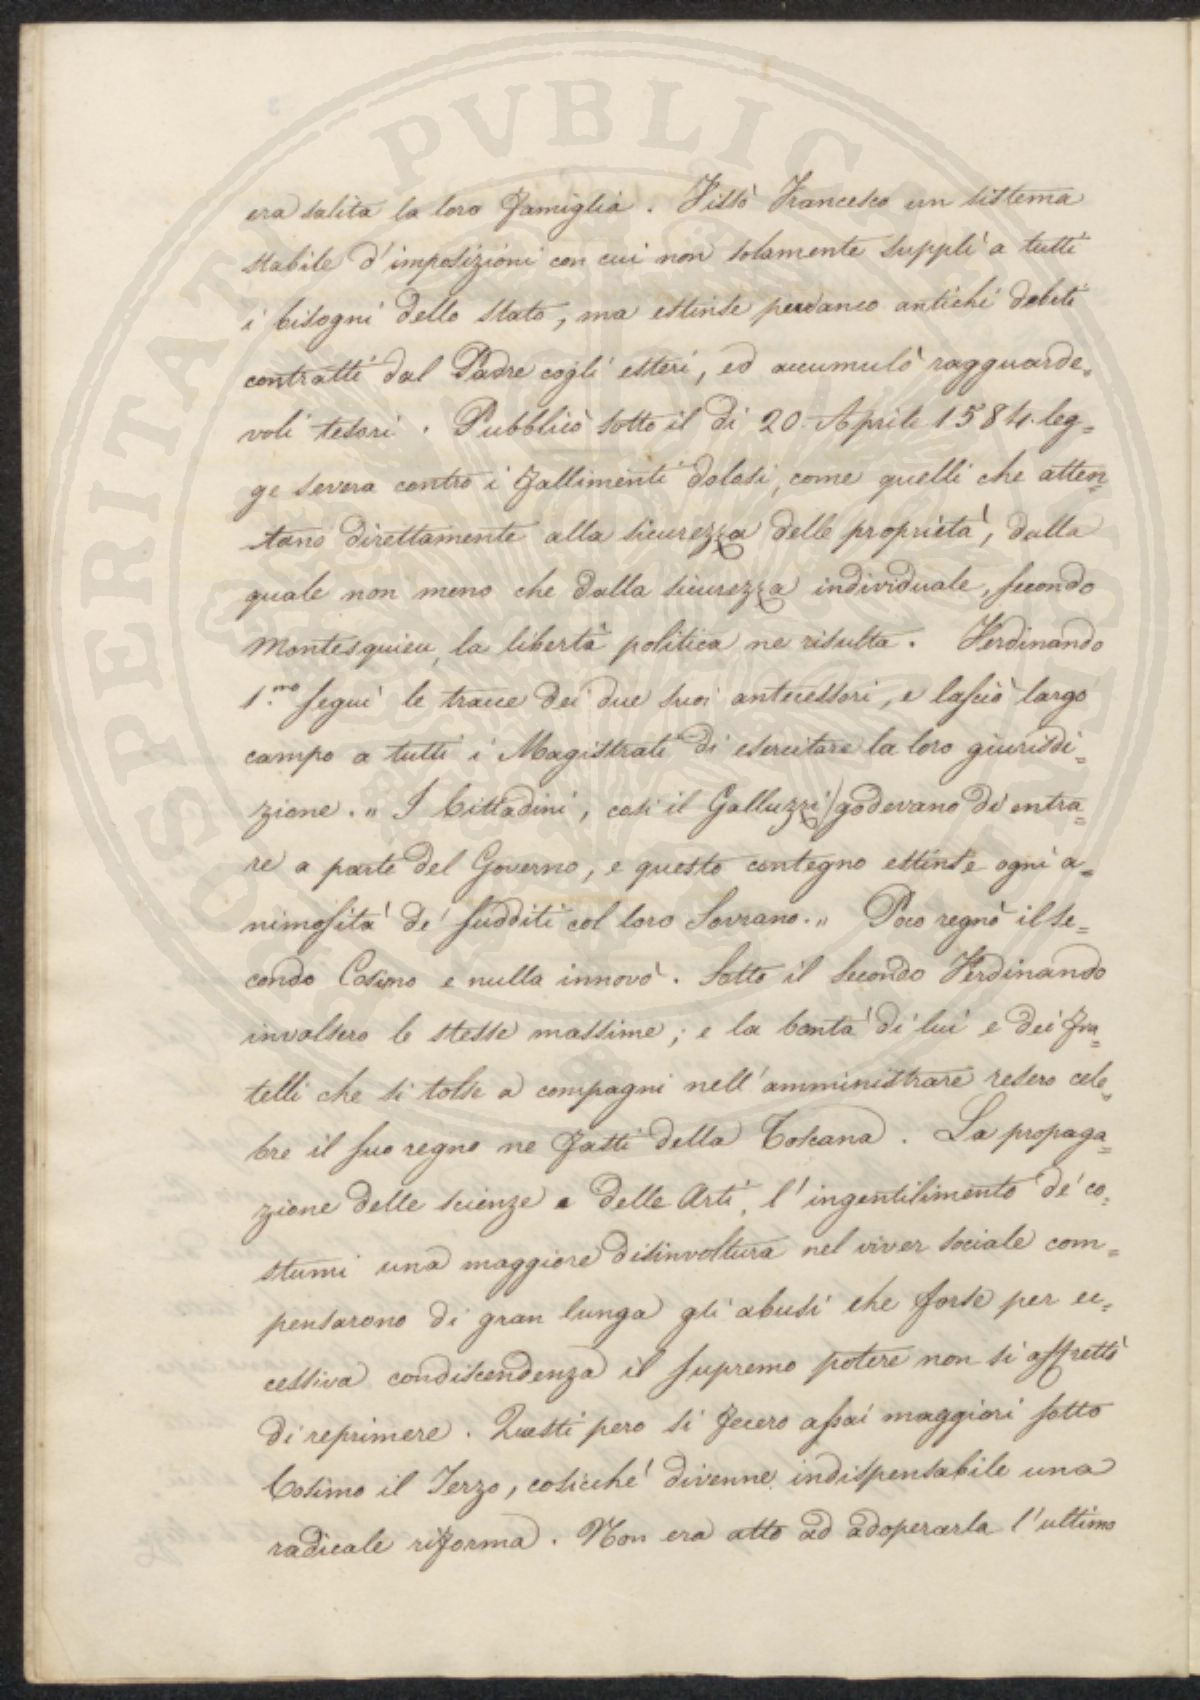 era salita la loro famiglia. Fissò Francesco un sistema
stabile d'imposizioni con cui non solamente supplì a tutti
i bisogni dello stato, ma estinse perdanco antichi debiti
contratti dal Padre cogli esteri, ed accumulò ragguarde=
voli tesori. Pubblicò sotto il dì 20. Aprile 1584. leg=
ge severa contro i fallimenti dolosi, come quelli che atten=
tano direttamente alla sicurezza delle proprietà, dalla
quale non meno che dalla sicurezza individuale, secondo
Montesquieu, la libertà politica ne risulta. Ferdinando
1.mo seguì le tracce dei due suoi antecessori, e lasciò largo
campo a tutti i Magistrati di esercitare la loro giurisdi=
zione. „ I Cittadini, così il Galluzzi) godevano di entra=
re a parte del Governo, e questo contegno estinse ogni a=
nimosità de' sudditi col loro Sovrano. „ Poco regnò il se=
condo Cosimo e nulla innovò. Sotto il secondo Ferdinando
invalsero le stesse massime; e la bontà di lui e dei fra=
telli che si tolse a compagni nell'amministrare resero cele=
bre il suo regno ne fasti della Toscana. La propaga=
zione delle scienze e delle Arti, l'ingentilimento de' co=
stumi una maggiore disinvoltura nel viver sociale com=
pensarono di gran lunga gli abusi che forse per ec=
cessiva condiscendenza il supremo potere non si affrettò
di reprimere. Questi pero si fecero assai maggiori sotto
Cosimo il Terzo, cosicché divenne indispensabile una
radicale riforma. Non era atto ad adoperarla l'ultimo
PROSPERITATI PVBLICAE